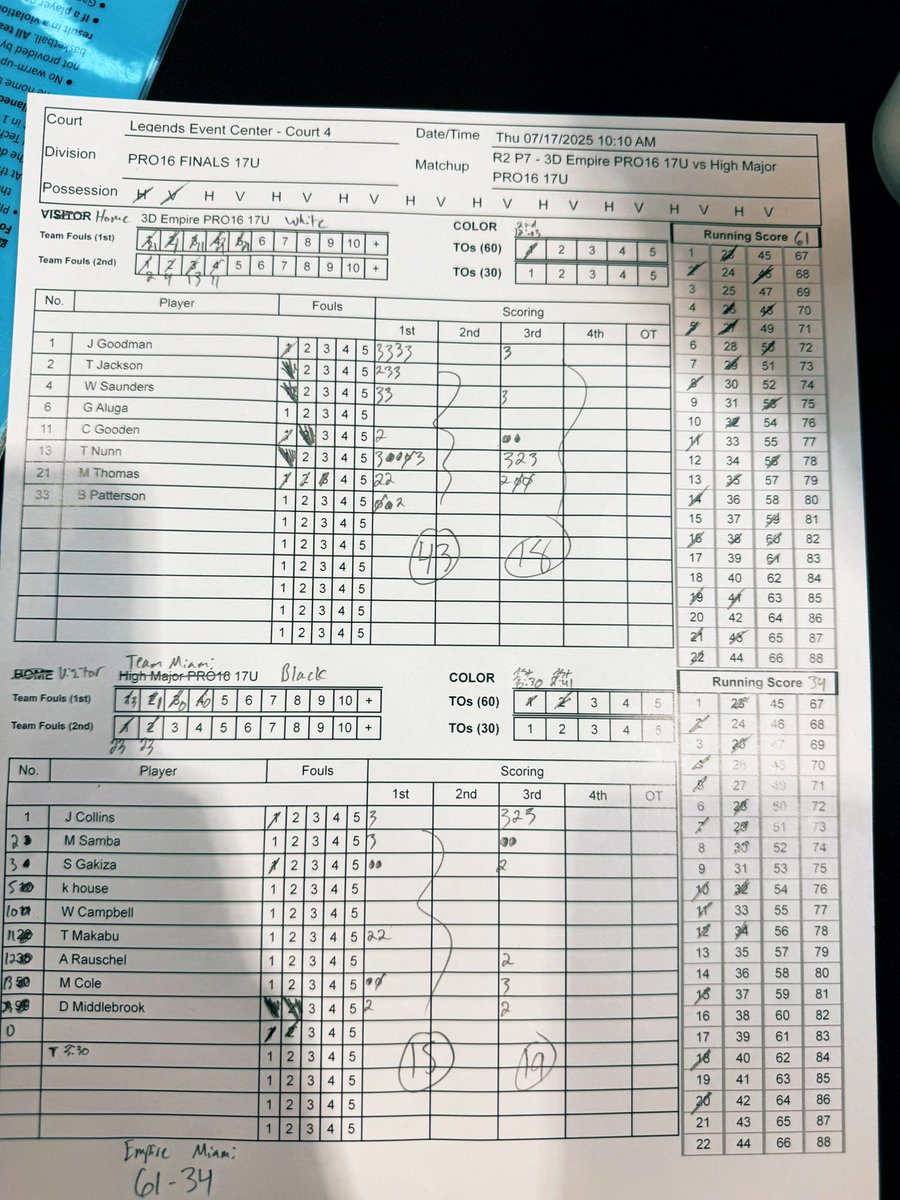 Court Legends Event Center - Court 4 Date/Time Thu 07/17/2025 10:10 AM
Division PRO16 FINALS 17U Matchup R2 P7 - 3D Empire PRO16 17U vs High Major PRO16 17U
Possession H V H V H V H V H V H V H V H V H V H V
VISITOR Home 3D Empire PRO16 17U White COLOR
Team Fouls (1st) 6 7 8 9 10 + TOs (60) 1 2 3 4 5
Team Fouls (2nd) 1 2 3 4 5 6 7 8 9 10 + TOs (30) 1 2 3 4 5
2 4 13 11
Running Score 61
No. Player Fouls Scoring
1st 2nd 3rd 4th OT
1 J Goodman 1 2 3 4 5 3333 3
2 T Jackson 2 3 4 5 233
4 W Saunders 2 3 4 5 33 3
6 G Aluga 1 2 3 4 5
11 C Gooden 1 3 4 5 2
13 T Nunn 2 3 4 5 323
21 M Thomas 1 2 3 4 5 22 200
33 B Patterson 1 2 3 4 5
1 2 3 4 5
1 2 3 4 5
1 2 3 4 5
1 2 3 4 5
1 2 3 4 5
1 2 3 4 5
43 18
1 23 45 67
2 24 46 68
3 25 47 69
4 26 48 70
5 27 49 71
6 28 50 72
7 29 51 73
8 30 52 74
9 31 53 75
10 32 54 76
11 33 55 77
12 34 56 78
13 35 57 79
14 36 58 80
15 37 59 81
16 38 60 82
17 39 61 83
18 40 62 84
19 41 63 85
20 42 64 86
21 43 65 87
22 44 66 88
HOME Visitor Team Miami High Major PRO16 17U Black COLOR 1st 3:30 1st 2:41
Team Fouls (1st) 5 6 7 8 9 10 + TOs (60) 1 2 3 4 5
Team Fouls (2nd) 1 2 3 4 5 6 7 8 9 10 + TOs (30) 1 2 3 4 5
23 23
Running Score 34
No. Player Fouls Scoring
1st 2nd 3rd 4th OT
1 J Collins 1 2 3 4 5 3 323
2 M Samba 1 2 3 4 5 3
3 S Gakiza 1 2 3 4 5 2
5 k house 1 2 3 4 5
10 W Campbell 1 2 3 4 5
11 T Makabu 1 2 3 4 5 22
12 A Rauschel 1 2 3 4 5 2
13 M Cole 1 2 3 4 5 3
D Middlebrook 3 4 5 2 2
0 1 2 3 4 5
T 3:30 1 2 3 4 5
1 2 3 4 5
1 2 3 4 5
1 2 3 4 5
15 19
1 23 45 67
2 24 46 68
3 25 47 69
4 26 48 70
5 27 49 71
6 28 50 72
7 29 51 73
8 30 52 74
9 31 53 75
10 32 54 76
11 33 55 77
12 34 56 78
13 35 57 79
14 36 58 80
15 37 59 81
16 38 60 82
17 39 61 83
18 40 62 84
19 41 63 85
20 42 64 86
21 43 65 87
22 44 66 88
Empire Miami
61-34